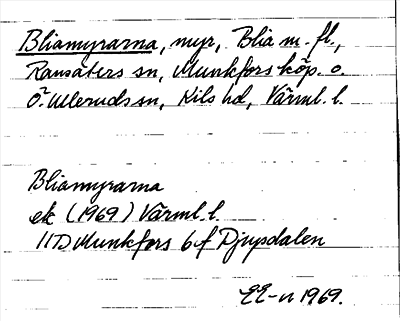 Bliamyrarna, myr, Blia m. fl.,
Ransäters sn, Munkfors köp. o.
Ö. Ulleruds sn, Kils hd, Värml. l.
Bliamyrarna
ek (1969) Värml. l.
11D Munkfors 6 f Djupdalen
EE-n 1969.